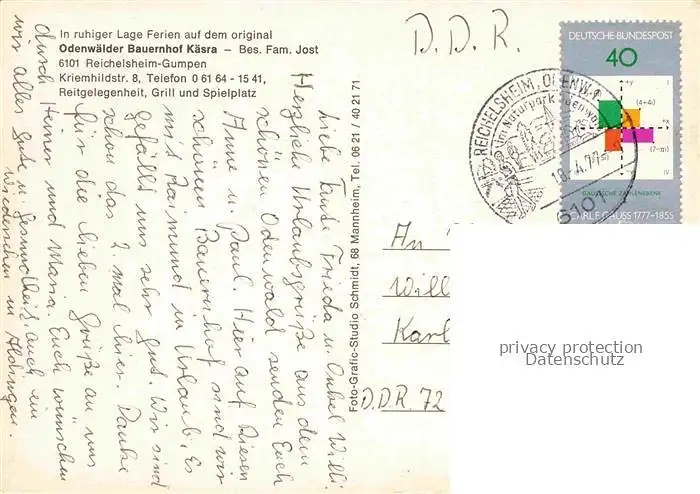 In ruhiger Lage Ferien auf dem original
Odenwälder Bauernhof Käsra – Bes. Fam. Jost
6101 Reichelsheim-Gumpen
Kriemhildstr. 8, Telefon 0 61 64 - 15 41,
Reitgelegenheit, Grill und Spielplatz
Liebe Tante Frieda u. Onkel Willi.
Herzliche Urlaubsgrüße aus dem
schönen Odenwald senden Euch
Anne u. Paul. Hier auf diesen
schönen Bauernhof sind wir
mit Raimund in Urlaub. Es
gefällt uns sehr gut. Wir sind
schon das 2. mal hier. Danke
für die lieben Grüße an uns
durch Heiner und Maria. Euch wünschen
wir alles Gute u. Gesundheit, auch ein
Wiedersehen in
Foto-Grafic-Studio Schmidt, 68 Mannheim, Tel. 06 21 / 40 21 71
D.D.R.
DEUTSCHE BUNDESPOST
40
+y
(4+4i)
+x
(7-πi)
-IV
GAUSSSCHE ZAHLENEBENE
CARL F. GAUSS 1777-1855
REICHELSHEIM, ODENW.
im Naturpark Odenwald
6101
An
Will
Karl
D.D.R. 72
privacy protection
Datenschutz